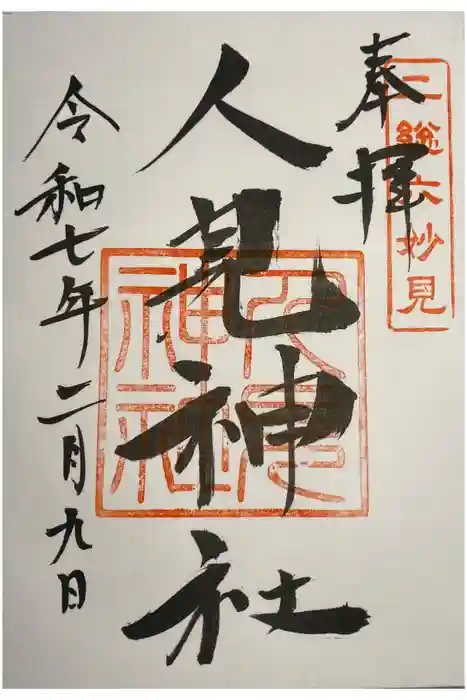 奉拝
二総六妙見
人見神社
人見神社
令和七年二月九日